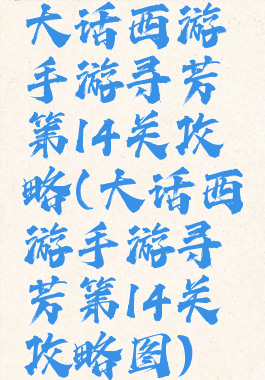 大话西游
手游寻芳
第14关攻
略(大话西
游手游寻
芳第14关
攻略图)